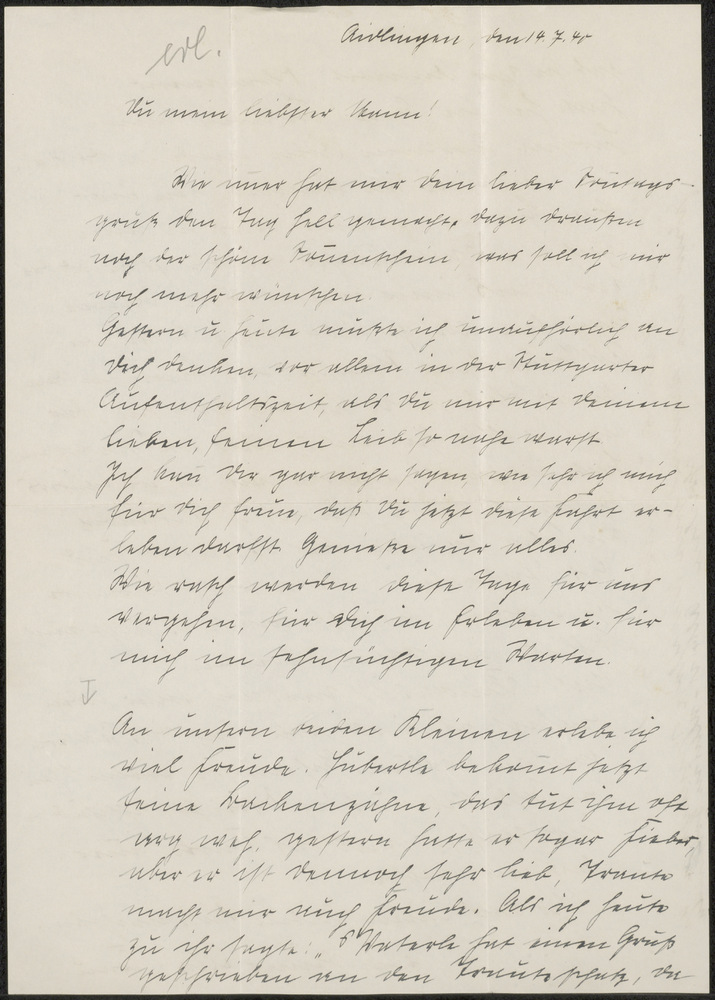 erl.
Aidlingen, den 14.7.40
Du mein liebster Mann!
Wie immer hat mir dein lieber Sonntags-
gruß den Tag hell gemacht, dazu draußen
noch der schöne Sonnenschein, was soll ich mir
noch mehr wünschen.
Gestern u. heute mußte ich unaufhörlich an
Dich denken, vor allem in der Stuttgarter
Aufenthaltszeit, als Du mir mit Deinem
lieben, feinen Leib so nahe warst.
Ich kann Dir gar nicht sagen, wie sehr ich mich
für Dich freue, daß Du jetzt diese Fahrt er-
leben darfst. Genieße nur alles.
Wie rasch werden diese Tage für uns
vergehen, für Dich im Erleben u. für
mich im sehnsüchtigen Warten.
An unsern beiden Kleinen erlebe ich
viel Freude. Hubertle bekommt jetzt
seine Backenzähne, das tut ihm oft
arg weh, gestern hatte er sogar Fieber,
aber er ist dennoch sehr lieb, Traute
macht mir auch Freude. Als ich heute
zu ihr sagte: „'s Vaterle hat einen Gruß
geschrieben an den Trauteschatz, da